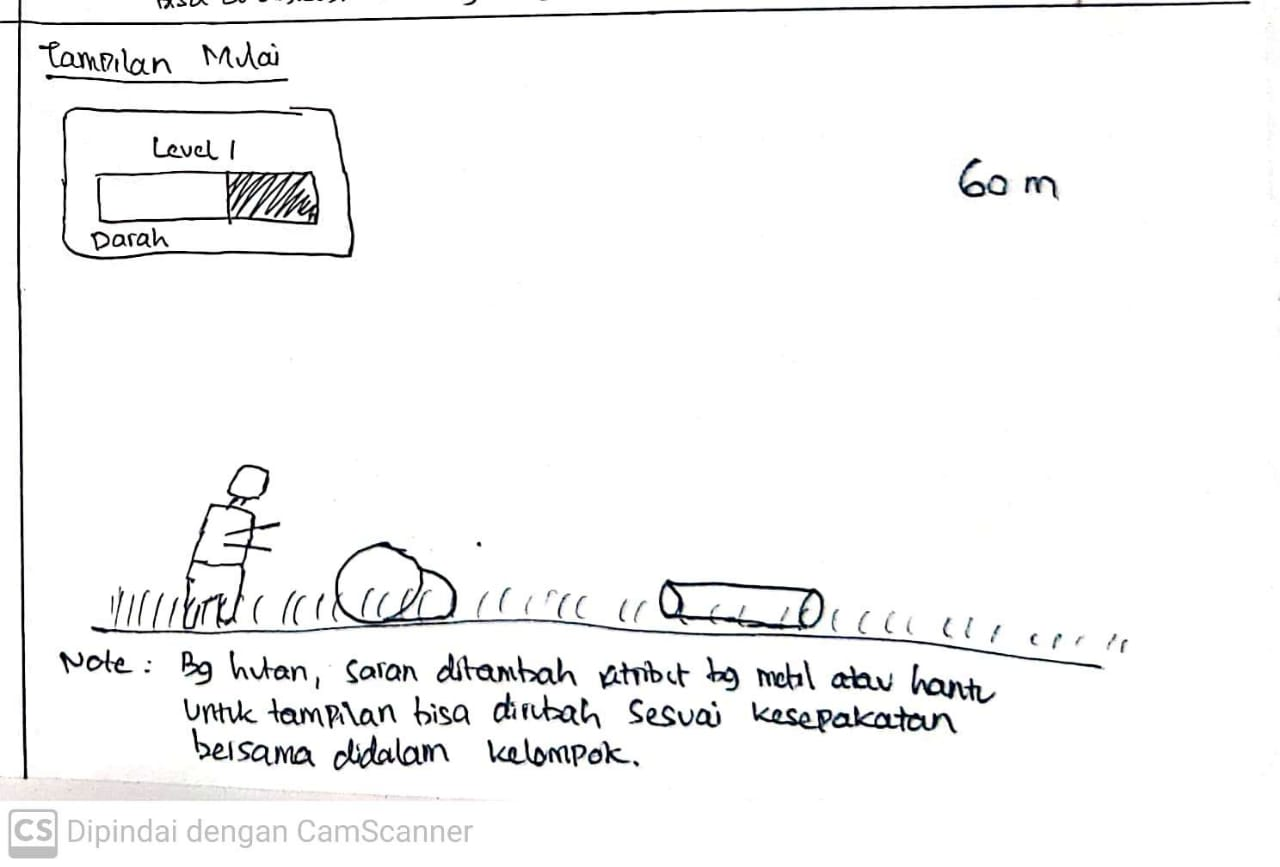 Tampilan Mulai
Level 1
60 m
Darah
Note : Bg hutan, saran ditambah atribut bg mobil atau hantu
untuk tampilan bisa dirubah sesuai kesepakatan
bersama didalam kelompok.
CS Dipindai dengan CamScanner